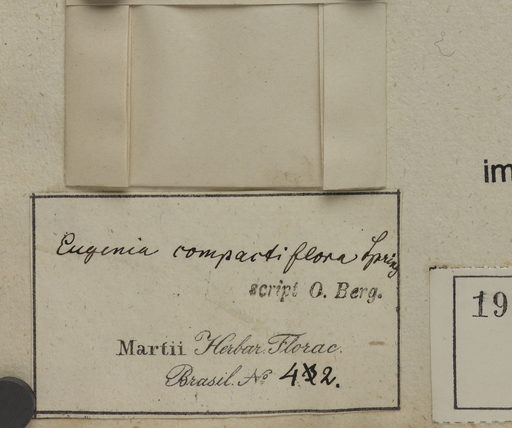 im
Eugenia compactiflora Spring
script O. Berg.
19
Martii Herbar. Florac.
Brasil. No